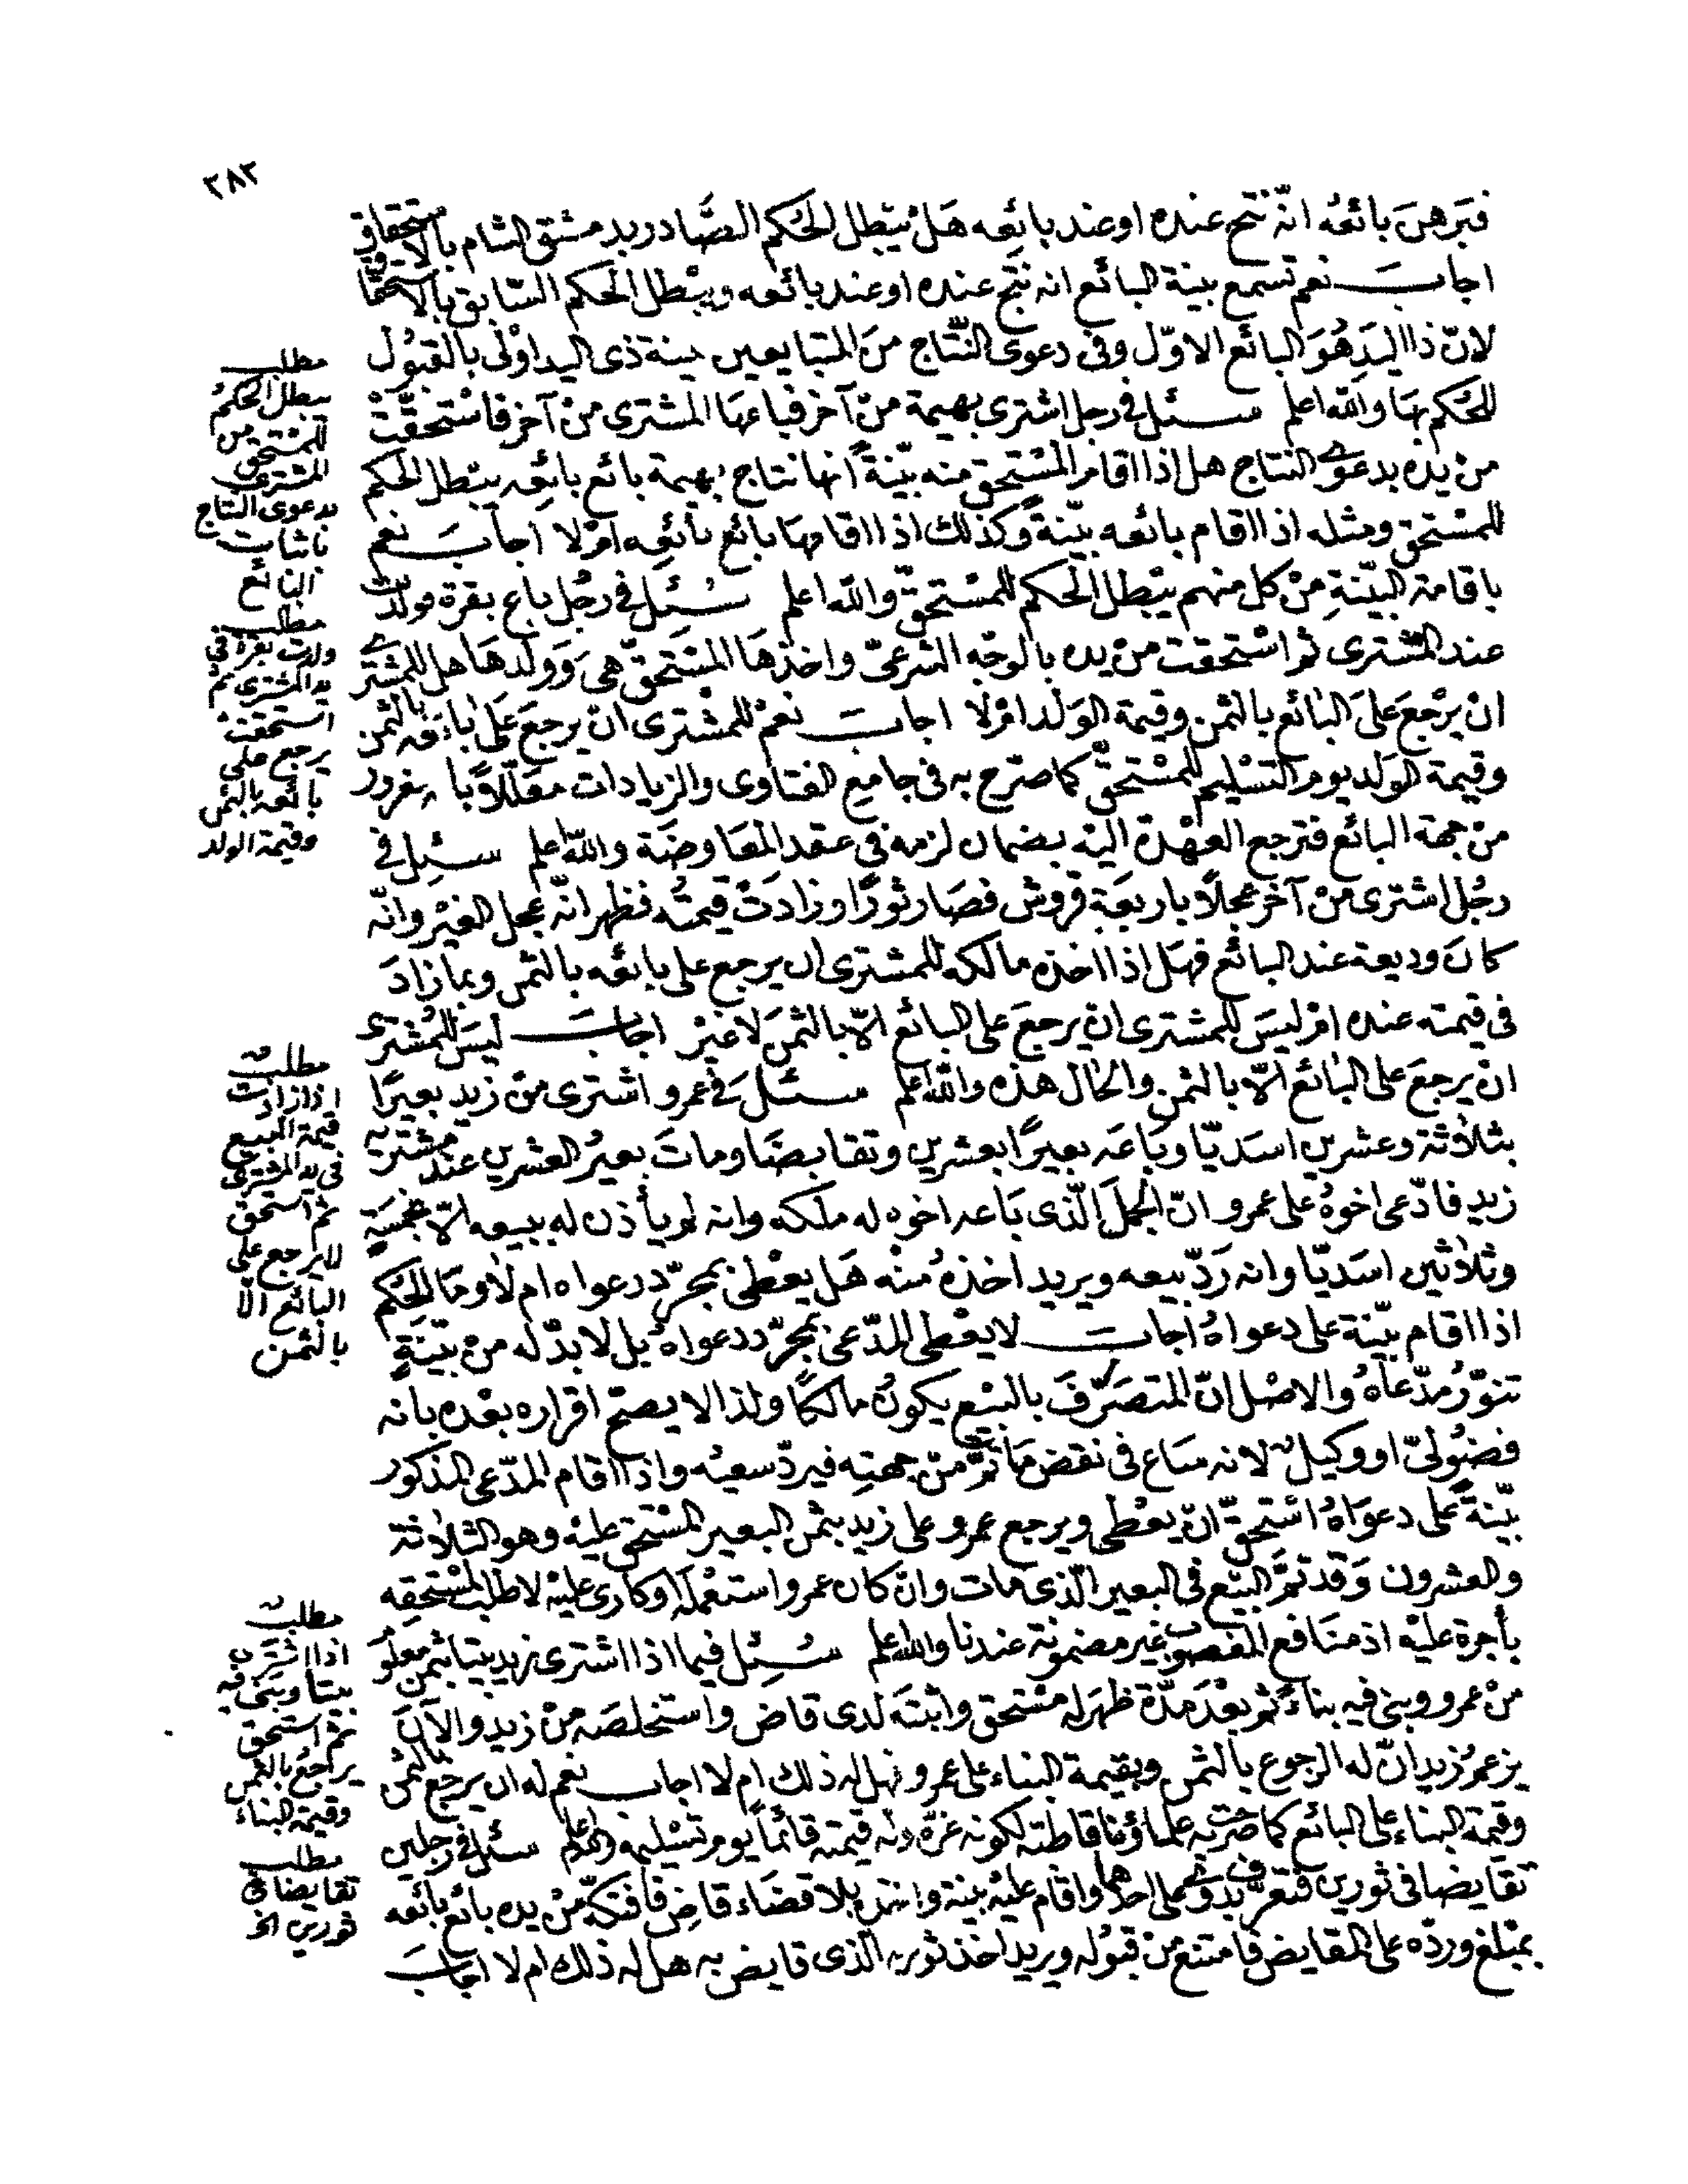 ٢٨٢
فبَرهنَ بائعُه انّه نتج عنده او عند بائعِه هَلْ يَبْطل الحُكم الصَّادر بدمشق الشام بالاستحقاق
اجاب نعم تسمع بينة البائع انه نتج عنده او عند بائعه ويبْطل الحكم السّابق بالاستحقاق
لانّ ذا اليَدِ هُوَ البائع الاوّل وفى دعوى النّتاج منَ المتبايعين بينة ذى اليد اوْلى بالقبُول
للحُكم بهَا والله اعلم سئل فى رجل اشترى بهيمة منْ آخر فباعهَا المشترى منْ آخر فاسْتحقّتْ
منْ يده بدعوى النتاج هل اذا اقام المسْتحق منه بيّنةً انها نتاج بهيمة بائع بائعِه يبْطل الحكم
للمسْتحق ومثله اذا اقام بائعه بيّنةً وكذلك اذا اقامهَا بائع بائعِه امْ لا اجابَ نعم
باقامة البيّنةِ منْ كل منهم يبْطل الحكم للمسْتحقّ والله اعلم سُئل فى رجُل باع بقرة فولدتْ
عند المشترى ثم اسْتحقت منْ يده بالوجْه الشرعىّ واخذهَا المسْتَحقّ هىَ وَولدهَا هل للمشترى
انْ يرْجعَ علىَ البائع بالثمن وقيمة الوَلد امْ لا اجابَ نعمْ للمشْترى انْ يرجعَ عَلى بائعه بالثمن
وقيمة الوَلد يوم التسْليم للمسْتحقّ كما صرّح به فى جامع الفتاوى والزيادات معَلّلاً بالغرور
منْ جهة البائع فترجع العهْدة اليْه بضمان لزمه فى عقد المعَاوضَة والله اعلم سئل فى
رجُل اشترى منْ آخر عجلاً باربعَةِ قروش فصَار ثورًا وزادَتْ قيمتُه فظهر انّه عجل الغيْر وانّه
كانَ وديعة عند البائع فهَل اذا اخذه مالكه للمشترى ان يرجع على بائعه بالثمن وبما زادَ
فى قيمته عنده امْ ليسَ للمشترى انْ يرجعَ على البائع الّا بالثمنَ لا غيْر اجابَ ليسَ للمُشترى
انْ يرجعَ على البَائع الّا بالثمن والحَال هذه والله اعلم سئلَ فى عمرو اشترى منْ زيد بعيرًا
بثلاثة وعشرين اسَديّا وبَاعَه بعيرًا بعشرين وتقابضَا وماتَ بعيرُ العشرين عند مشتريه
زيد فادّعى اخوهُ على عمرو انّ الجملَ الّذى بَاعه اخوه له ملكه وانه لم يأذن له ببيعه الّا بخمسَةٍ
وثلاثين اسَديّا وانه رَدّ بيعه ويريد اخذهُ منْه هَل يعْطى بمجرّد دعواه ام لا وَما الحُكم
اذا اقام بيّنة على دعواهُ اجابَ لا يعْطى المدّعى بمجرّد دعواهُ بل لا بدّ له منْ بيّنةٍ
تنوّرُ مدّعاهُ والاصْل انّ المتصَرّفَ بالبيْع يكونُ مالكًا ولذا لا يصحّ اقراره بعْده بانه
فضُولىّ او وكيلٌ لانه سَاع فى نقض مَا تمَّ منْ جهتِه فيردّ سعيُه واذا اقام المدّعى المذكور
بيّنةً على دعوَاهُ اسْتحقّ انْ يعْطى ويرجع عمرو على زيد بثمن البعير المسْتحق عليْه وهو الثلاثة
والعشرون وَقد تمَّ البيْع فى البعير الّذى مات وانْ كان عمرو استعْملهُ او كارى عليْه لا طلب لمسْتحقه
بأجرة عليْه اذ منَافع المغصوب غير مضمونة عندنا والله اعلم سُئل فيما اذا اشترى زيد بيتا بثمن معلوم
منْ عمرو وبنى فيه بناءً ثم بعْدَ مدّة ظهَر له مسْتحق واثبتَه لدى قاض واستخلصَه منْ زيد والآنَ
يزعمُ زيد انّ له الرجوع بالثمن وبقيمة البناء على عمرو فهل له ذلك ام لا اجاب نعم له ان يرجع بالثمن
وقيمة البناء على البائع كما صرحت به علماؤنا قاطبة لكونه غرّه وله قيمته قائماً يوم تسْليمه والله اعلم سئل فى رجلين
تقايضا فى ثورين فتعرّف بدوى على احدهما واقام عليْه بينة واستدّه بلا قضَاء قاضٍ فافتكّه منْ يده بائع بائعه
بمبْلغ وردّه على المقايض فامتنع من قبُوله ويريد اخذ ثوره الّذى قايض به هل له ذلك ام لا اجابَ
مطلب
يبطل الحكمُ
للمسْتحق من
المشترى
بدعوى النتاج
باثبات
البائع
مطلب
ولدت بقرة فى
يد المشترى ثم
استحقتْ
يرجع على
بائعه بالثمن
وقيمة الولد
مطلب
اذا زادت
قيمة المبيع
فى يد المشترى
ثم استحق
لا يرجع على
البائع الّا
بالثمن
مطلب
اذا اشترى
بيتا وبنى فيه
ثم استحق
يراجعُ بالثمن
وقيمة البناء
مطلب
تقايضا فى
ثورين الخ